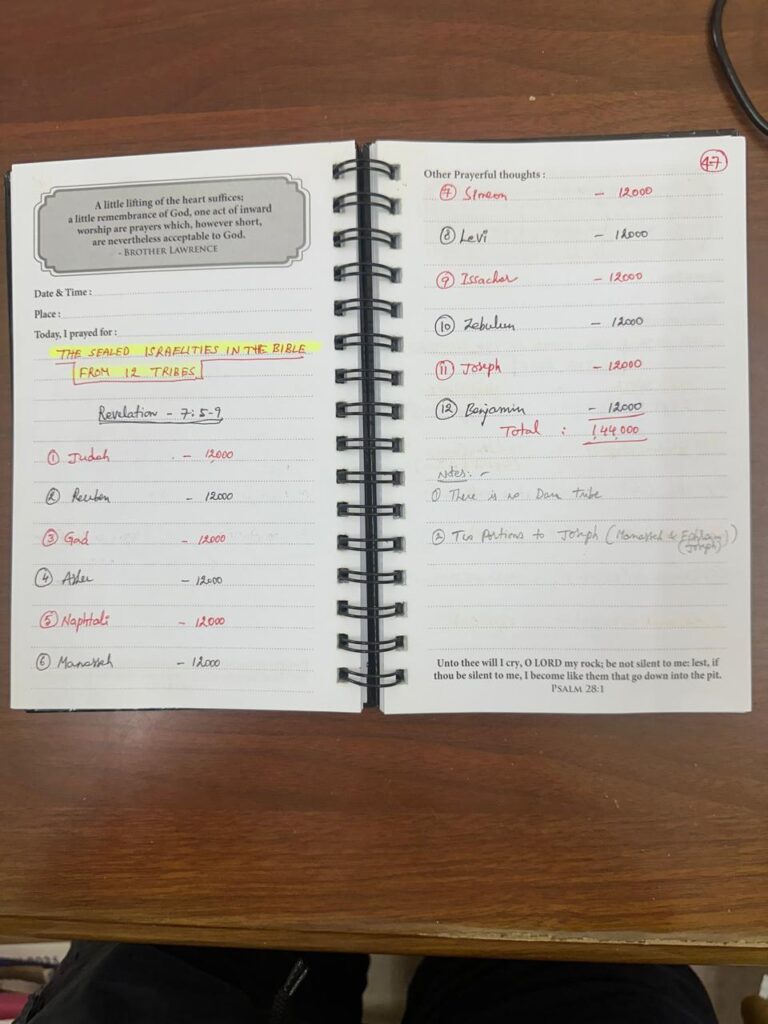 A little lifting of the heart suffices;
a little remembrance of God, one act of inward
worship are prayers which, however short,
are nevertheless acceptable to God.
- BROTHER LAWRENCE
Date & Time :
Place :
Today, I prayed for :
THE SEALED ISRAELITIES IN THE BIBLE
FROM 12 TRIBES
Revelation - 7:5-9
① Judah - 12,000
② Reuben - 12000
③ Gad - 12000
④ Asher - 12000
⑤ Naphtali - 12000
⑥ Manasseh - 12000
47
Other Prayerful thoughts :
⑦ Simeon - 12000
⑧ Levi - 12000
⑨ Issachar - 12000
⑩ Zebulun - 12000
⑪ Joseph - 12000
⑫ Benjamin - 12000
Total : 1,44,000
Notes: -
① There is no Dan tribe
② Two Portions to Joseph (Manasseh & Ephraim)
(Joseph)
Unto thee will I cry, O LORD my rock; be not silent to me: lest, if
thou be silent to me, I become like them that go down into the pit.
PSALM 28:1